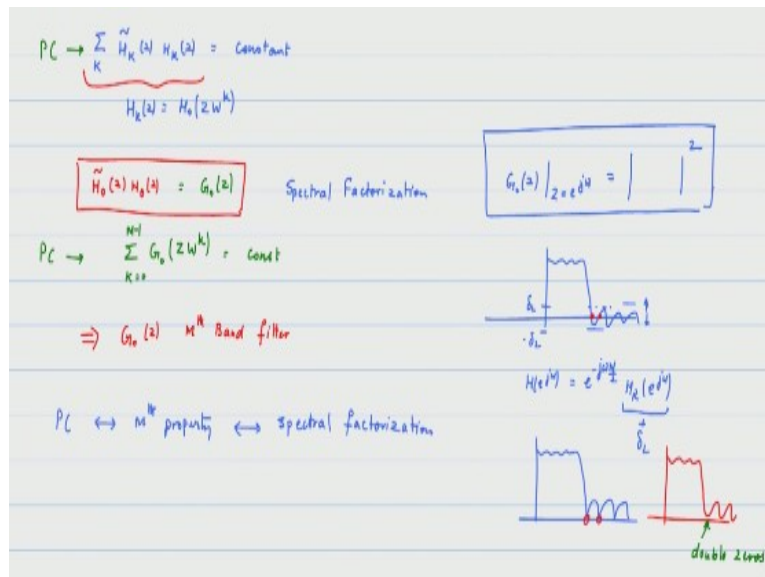 PC → Σ_K H̃_K(z) H_K(z) = constant
H_K(z) = H_0(zW^K)
H̃_0(z) H_0(z) = G_0(z)
Spectral Factorization
G_0(z)|_{z=e^{jω}} = | |^2
PC → Σ_{K=0}^{M-1} G_0(zW^K) = const
⇒ G_0(z) Mth Band filter
δ_2
-δ_2
H(e^{jω}) = e^{-jωN/2} H_R(e^{jω})
PC ↔ Mth property ↔ spectral factorization
double zeros